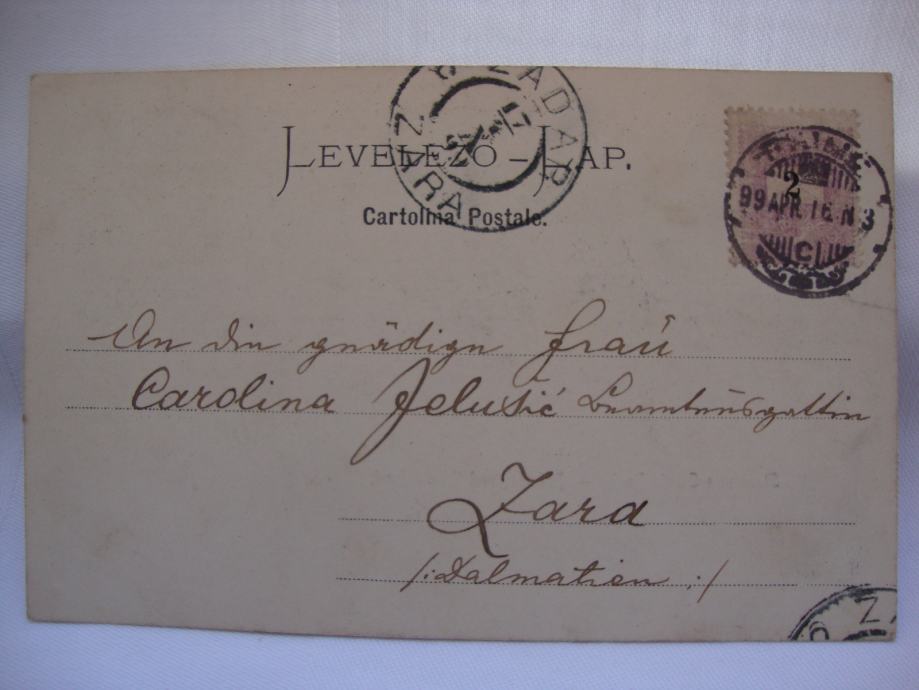 LEVELEZŐ-LAP.
Cartolina Postale.
ZADAR
ZARA
17
2
99 APR. 16. N 3
An die gnädige Frau
Carolina Jelušić Beamtensgattin
Zara
/: Dalmatien :/